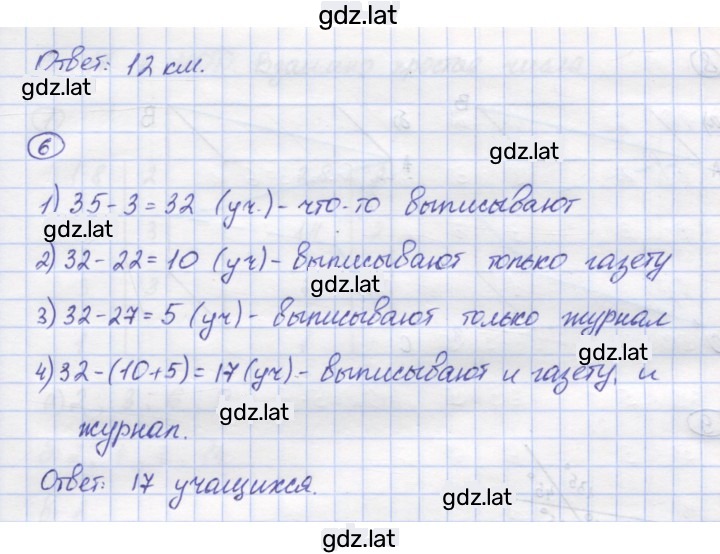 gdz.lat
Ответ: 12 км.
gdz.lat
6
gdz.lat
1) 35-3=32 (уч.) - что-то выписывают
gdz.lat
2) 32-22=10 (уч) - выписывают только газету
gdz.lat
3) 32-27=5 (уч) - выписывают только журнал
gdz.lat
4) 32-(10+5)=17 (уч) - выписывают и газету, и
gdz.lat
журнал.
Ответ: 17 учащихся.
gdz.lat
gdz.lat